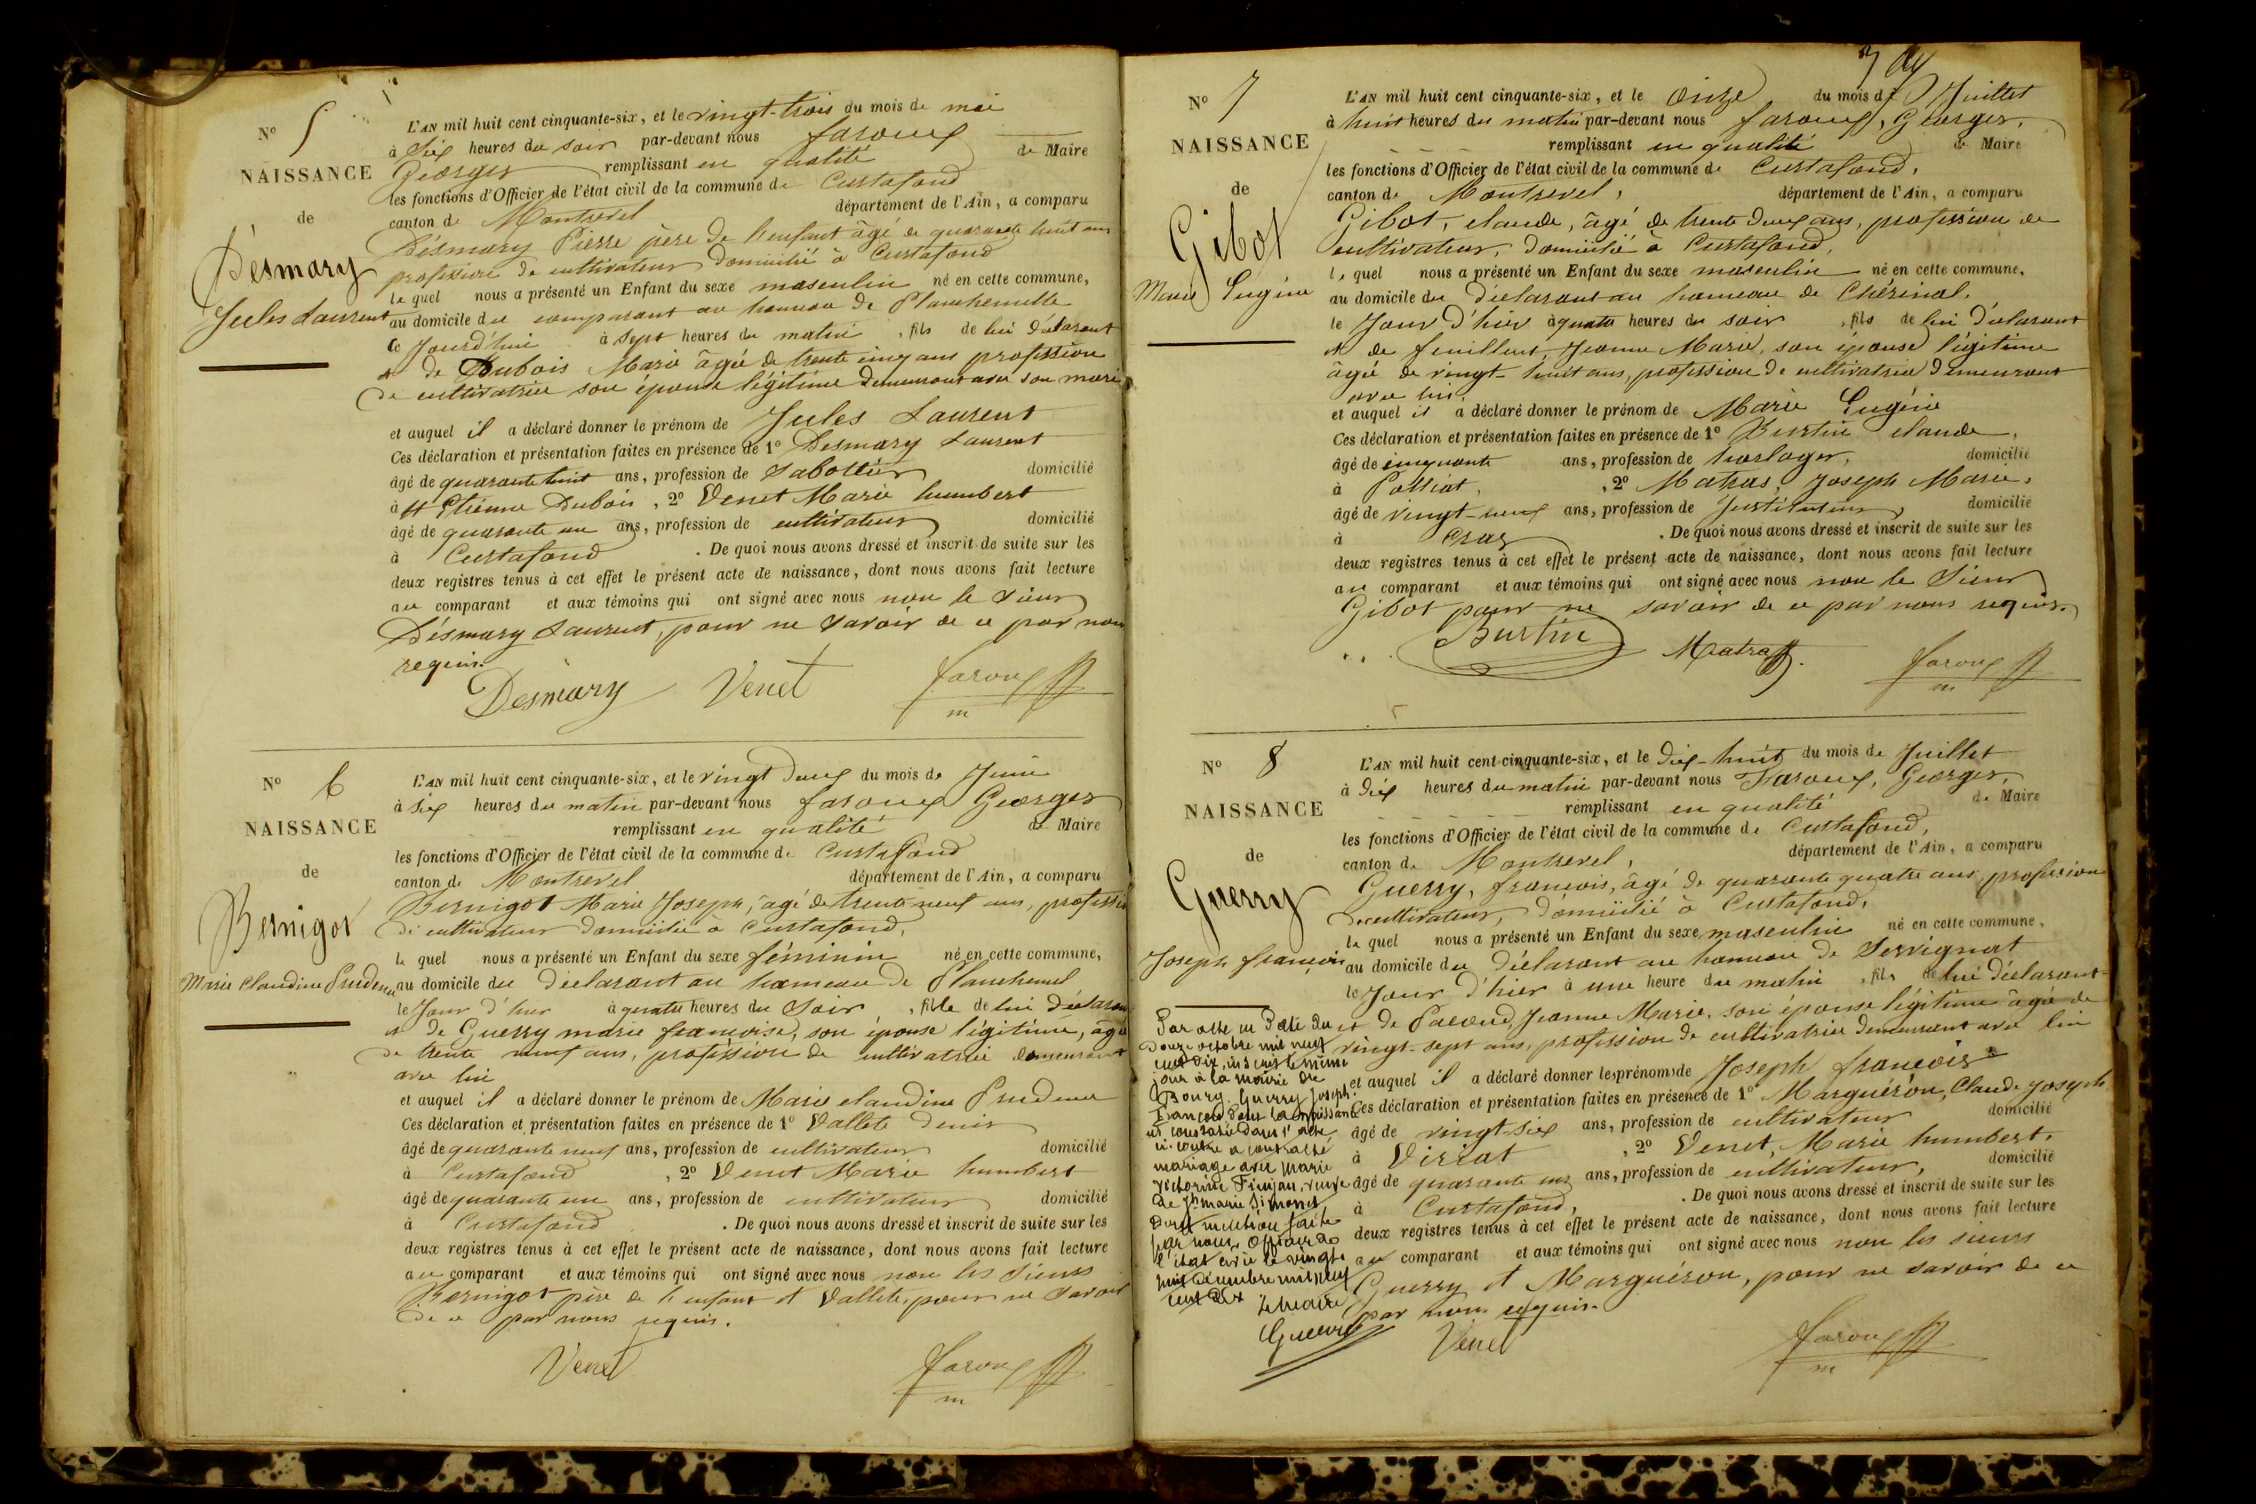 N° 5
NAISSANCE
de
Désmary
Jules Laurent
L'AN mil huit cent cinquante-six, et le vingt-trois du mois de mai
à six heures du soir par-devant nous faroux
Georges remplissant en qualité de Maire
les fonctions d'Officier de l'état civil de la commune de Curtafond
canton de Montrevel département de l'Ain, a comparu
Désmary Pierre père de l'enfant âgé de quarante huit ans
profession de cultivateur domicilié à Curtafond
le quel nous a présenté un Enfant du sexe masculin né en cette commune,
au domicile du comparant au hameau de
ce Jourd'hui à sept heures du matin, fils de lui déclarant
et de Dubois Marie âgée de trente cinq ans profession
de cultivatrice son épouse légitime demeurant avec son mari
et auquel il a déclaré donner le prénom de Jules Laurent
Ces déclaration et présentation faites en présence de 1° Desmary Laurent
âgé de quarante huit ans, profession de Sabottier domicilié
à St Etienne Dubois, 2° Venet Marie humbert
âgé de quarante un ans, profession de cultivateur domicilié
à Curtafond. De quoi nous avons dressé et inscrit de suite sur les
deux registres tenus à cet effet le présent acte de naissance, dont nous avons fait lecture
au comparant et aux témoins qui ont signé avec nous non le Sieur
Désmary Laurent, pour ne savoir de ce par nous
requis.
Desmary Venet faroux
m
N° 6
NAISSANCE
de
Bernigot
Marie Claudine Prudence
L'AN mil huit cent cinquante-six, et le vingt deux du mois de Juin
à six heures du matin par-devant nous faroux Georges
remplissant en qualité de Maire
les fonctions d'Officier de l'état civil de la commune de Curtafond
canton de Montrevel département de l'Ain, a comparu
Bernigot Marie Joseph, âgé de trente neuf ans, profession
de cultivateur domicilié à Curtafond,
le quel nous a présenté un Enfant du sexe féminin né en cette commune,
au domicile du déclarant au hameau de
le Jour d'hier à quatre heures du Soir, fille de lui déclarant
et de Guerry marie françoise, son épouse légitime, âgée
de trente neuf ans, profession de cultivatrice demeurant
avec lui
et auquel il a déclaré donner le prénom de Marie claudine Prudence
Ces déclaration et présentation faites en présence de 1° Vallete denis
âgé de quarante neuf ans, profession de cultivateur domicilié
à Curtafond, 2° Venet Marie humbert
âgé de quarante un ans, profession de cultivateur domicilié
à Curtafond. De quoi nous avons dressé et inscrit de suite sur les
deux registres tenus à cet effet le présent acte de naissance, dont nous avons fait lecture
au comparant et aux témoins qui ont signé avec nous non les Sieurs
Bernigot père de l'enfant et Vallete, pour ne savoir
de ce par nous requis.
Venet faroux
m
N° 7
NAISSANCE
de
Gibot
Marie Eugène
L'AN mil huit cent cinquante-six, et le onze du mois de Juillet
à huit heures du matin par-devant nous faroux, Georges,
remplissant en qualité de Maire
les fonctions d'Officier de l'état civil de la commune de Curtafond,
canton de Montrevel, département de l'Ain, a comparu
Gibot, claude, âgé de trente deux ans, profession de
cultivateur, domicilié à Curtafond,
le quel nous a présenté un Enfant du sexe masculin né en cette commune,
au domicile du déclarant au hameau de Chérinal,
le Jour d'hier à quatre heures du soir, fils de lui déclarant
et de feuillent, Jeanne Marie, son épouse légitime
âgée de vingt-huit ans, profession de cultivatrice demeurant
avec lui.
et auquel il a déclaré donner le prénom de Marie Eugène
Ces déclaration et présentation faites en présence de 1° Burtin claude,
âgé de cinquante ans, profession de horloger, domicilié
à Polliat, 2° Matras, Joseph Marie,
âgé de vingt-neuf ans, profession de Instituteur, domicilié
à Cras. De quoi nous avons dressé et inscrit de suite sur les
deux registres tenus à cet effet le présent acte de naissance, dont nous avons fait lecture
au comparant et aux témoins qui ont signé avec nous non le Sieur
Gibot pour ne savoir de ce par nous requis.
Burtin Matras. faroux
m
N° 8
NAISSANCE
de
Guerry
Joseph françois
L'AN mil huit cent cinquante-six, et le dix-huit du mois de Juillet
à dix heures du matin par-devant nous Faroux, Georges,
remplissant en qualité de Maire
les fonctions d'Officier de l'état civil de la commune de Curtafond,
canton de Montrevel, département de l'Ain, a comparu
Guerry, françois, âgé de quarante quatre ans, profession
de cultivateur, domicilié à Curtafond,
le quel nous a présenté un Enfant du sexe masculin né en cette commune,
au domicile du déclarant au hameau de Servignat
le Jour d'hier à une heure du matin, fils de lui déclarant
et de Pacoud, Jeanne Marie, son épouse légitime âgée de
vingt-sept ans, profession de cultivatrice demeurant avec lui
et auquel il a déclaré donner les prénoms de Joseph françois
Ces déclaration et présentation faites en présence de 1° Marguéron, Claude Joseph
âgé de vingt-six ans, profession de cultivateur domicilié
à Viriat, 2° Venet, Marie humbert,
âgé de quarante un ans, profession de cultivateur, domicilié
à Curtafond, . De quoi nous avons dressé et inscrit de suite sur les
deux registres tenus à cet effet le présent acte de naissance, dont nous avons fait lecture
au comparant et aux témoins qui ont signé avec nous non les sieurs
Guerry et Marguéron, pour ne savoir de ce
par nous requis.
Venet faroux
m
Par acte en date du
douze octobre mil neuf
cent dix, inscrit le même
jour à la mairie de
Bourg, Guerry Joseph
françois dont la naissance
est constatée dans l'acte
ci-contre a contracté
mariage avec Marie
Victorine veuve
de Jh marie Simonet
Dont mention faite
par nous Officier de
l'état civil le vingt
huit décembre mil neuf
cent dix
Le maire